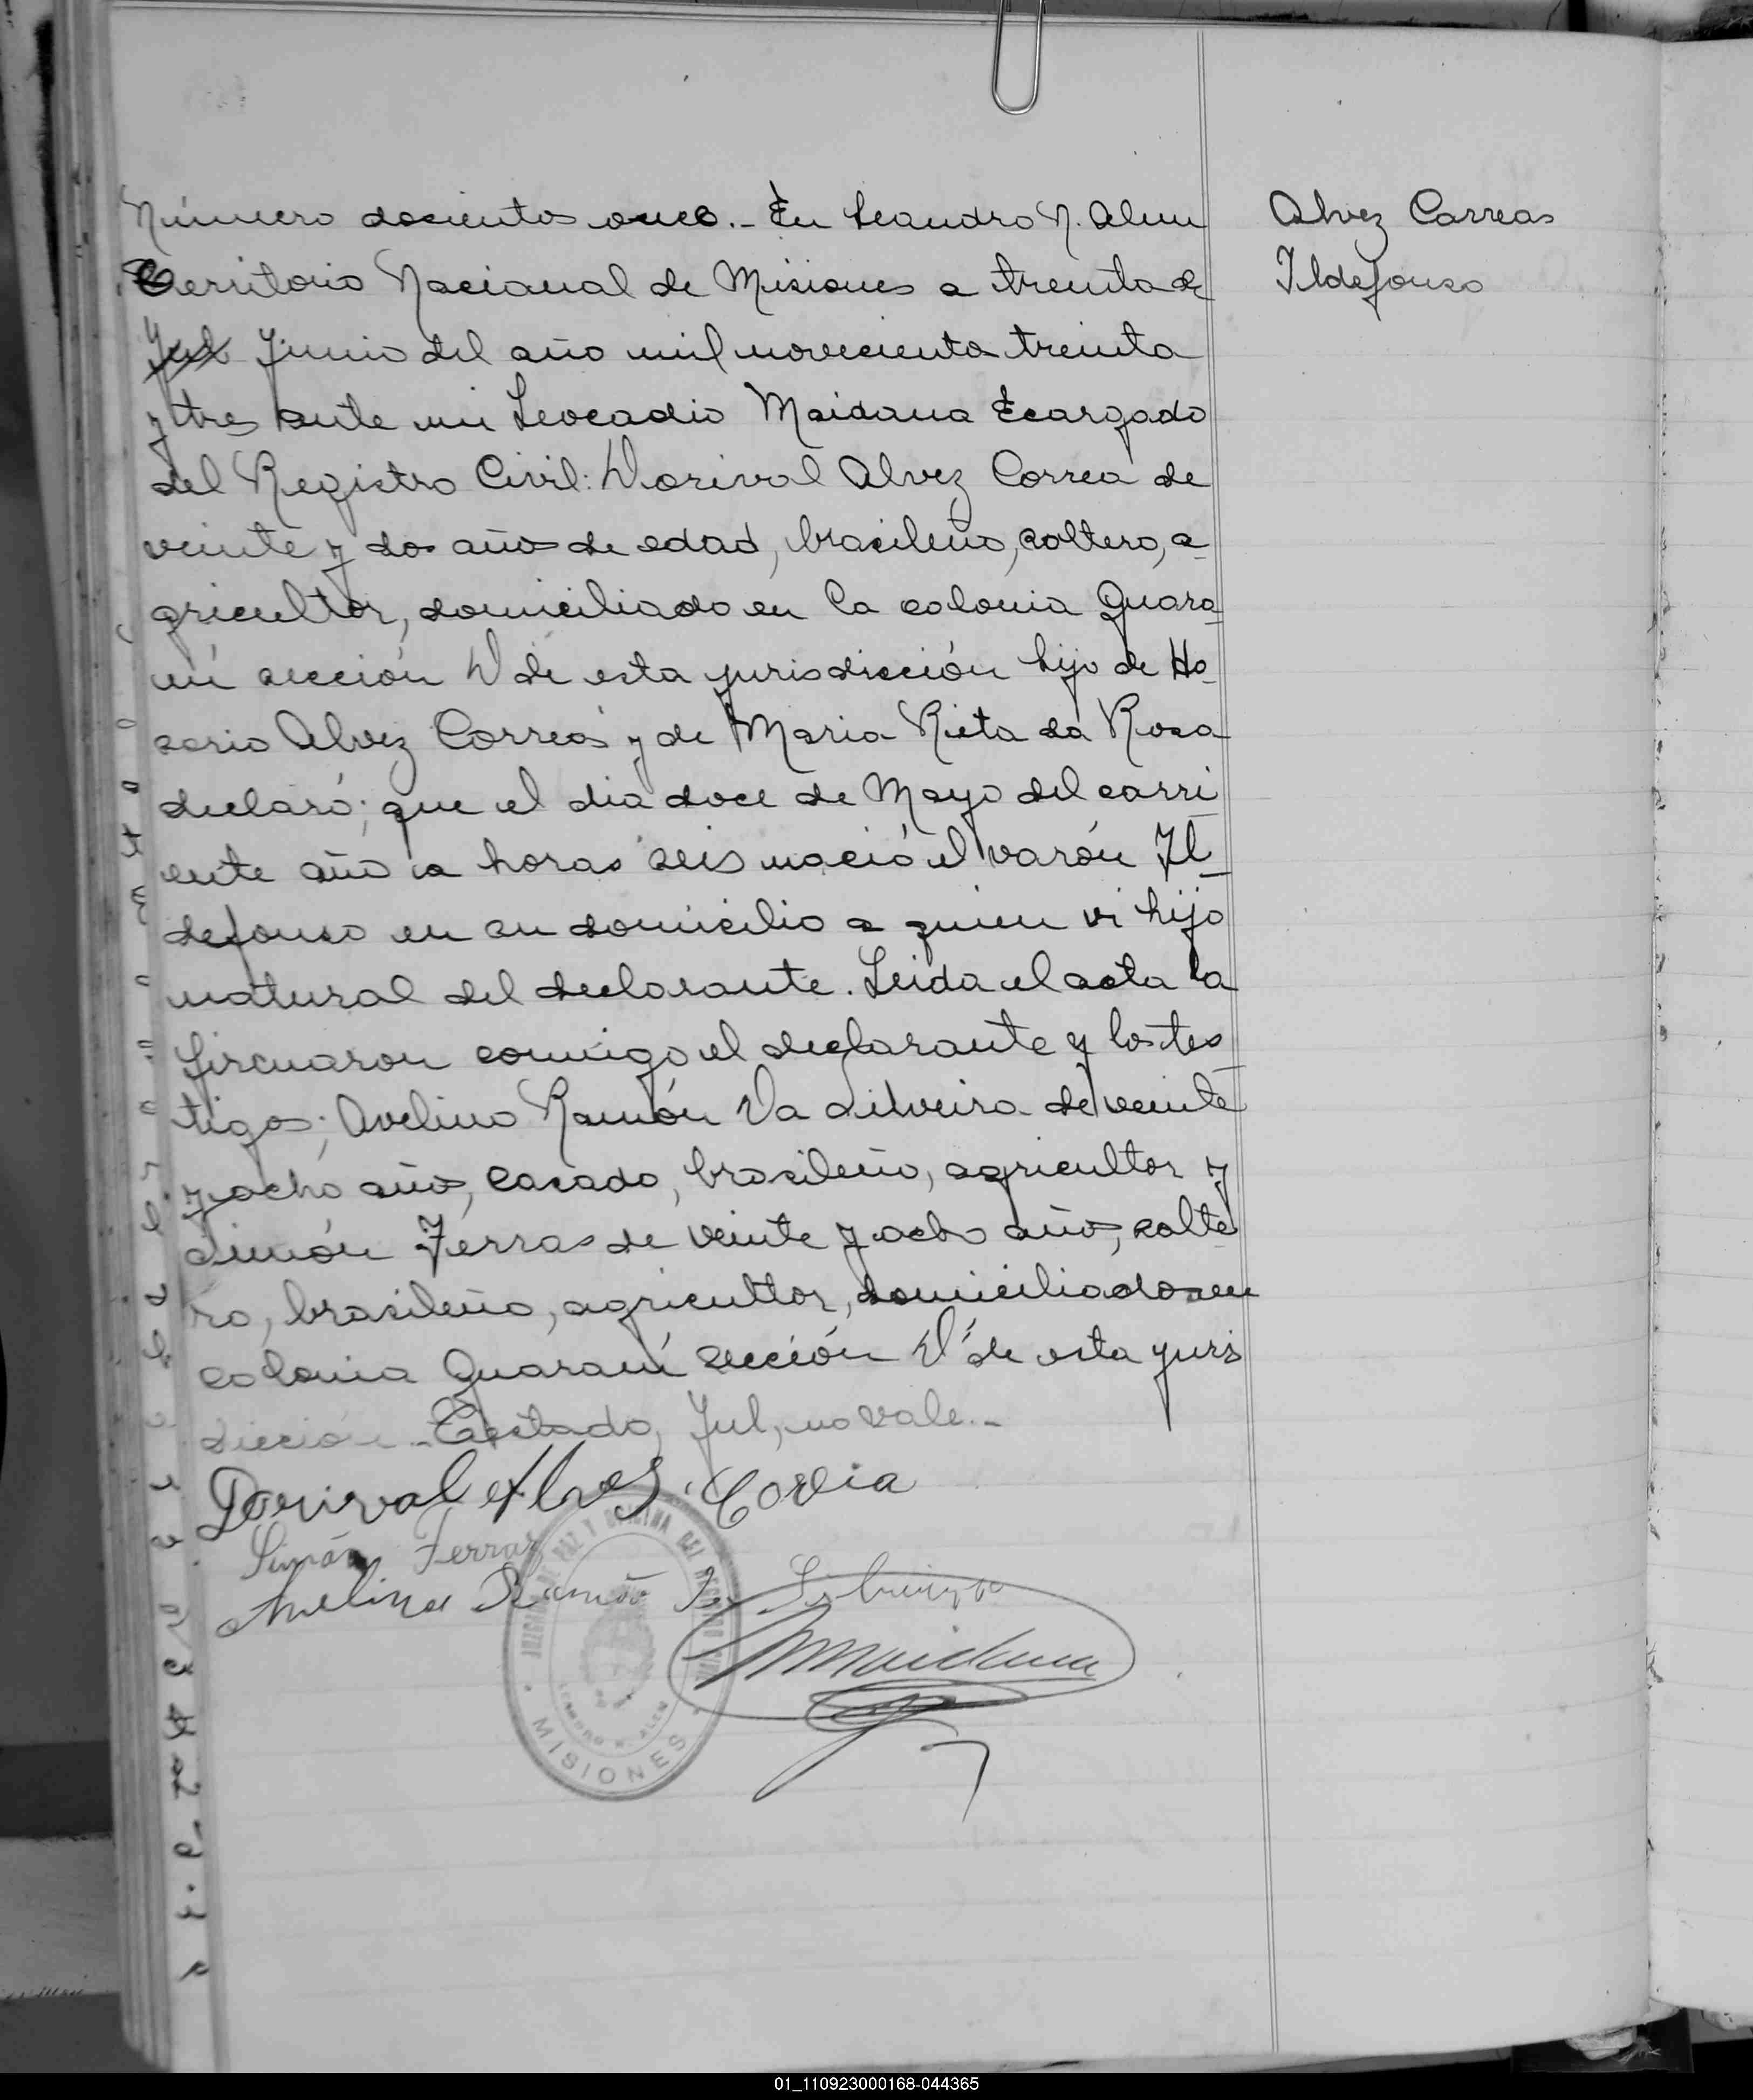 Número doscientos once.- En Leandro N. Alem
Territorio Nacional de Misiones a treinta de
Jul Junio del año mil novecientos treinta
y tres ante mi Leocadio Maidana Ecargado
del Registro Civil: Dorival Alvez Correa de
veinte y dos años de edad, brasileño, soltero, a-
gricultor, domiciliado en la colonia Guara-
ní sección D de esta jurisdicción hijo de Ho-
sorio Alvez Correas y de Maria Rieta da Rosa
declaró; que el dia doce de Mayo del corri
ente año a horas seis nació el varón Il-
defonso en su domicilio a quien vi hijo
natural del declarante. Leida el acta la
firmaron conmigo el declarante y los tes-
tigos; Avelino Ramón Da Silveira de veinte
y ocho años, casado, brasileño, agricultor y
Simón Ferras de veinte y ocho años, solte-
ro, brasileño, agricultor, domiciliados en
colonia Guaraní sección D de esta juris
dicción.- Testado, Jul, no vale.-
Dorival Alves Correia
Simón Ferras
Avelino Ramão Da Silveira
Maidana
JUZGADO DE PAZ Y OFICINA DEL REGISTRO CIVIL
LEANDRO N. ALEM
MISIONES
Alvez Correas
Ildefonso
01_110923000168-044365